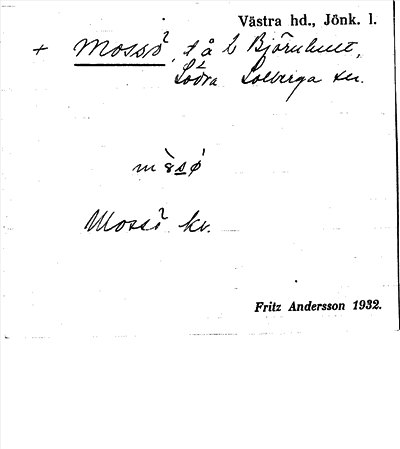 Västra hd., Jönk. l.
+ Mossö, t å l Björnhult,
Södra Solberga sn.
mèsø
Mossö kv.
Fritz Andersson 1932.